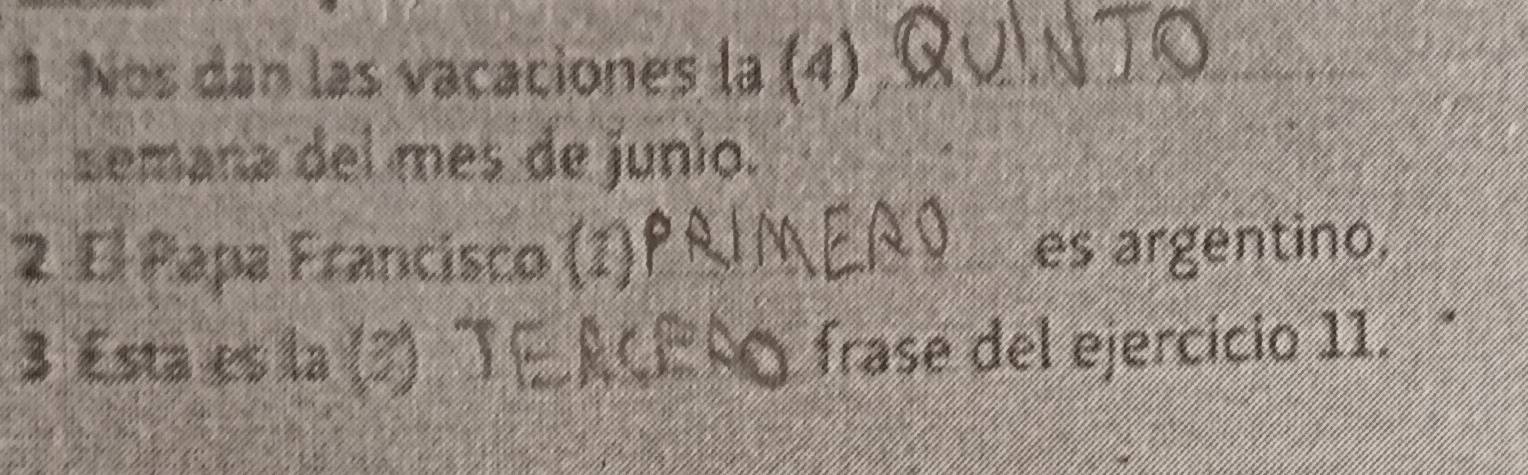 1 Nos dan las vacaciones la (4) QUINTO
semana del mes de junio.
2 El Papa Francisco (1) PRIMERO es argentino.
3 Esta es la (3) TERCERO frase del ejercicio 11.